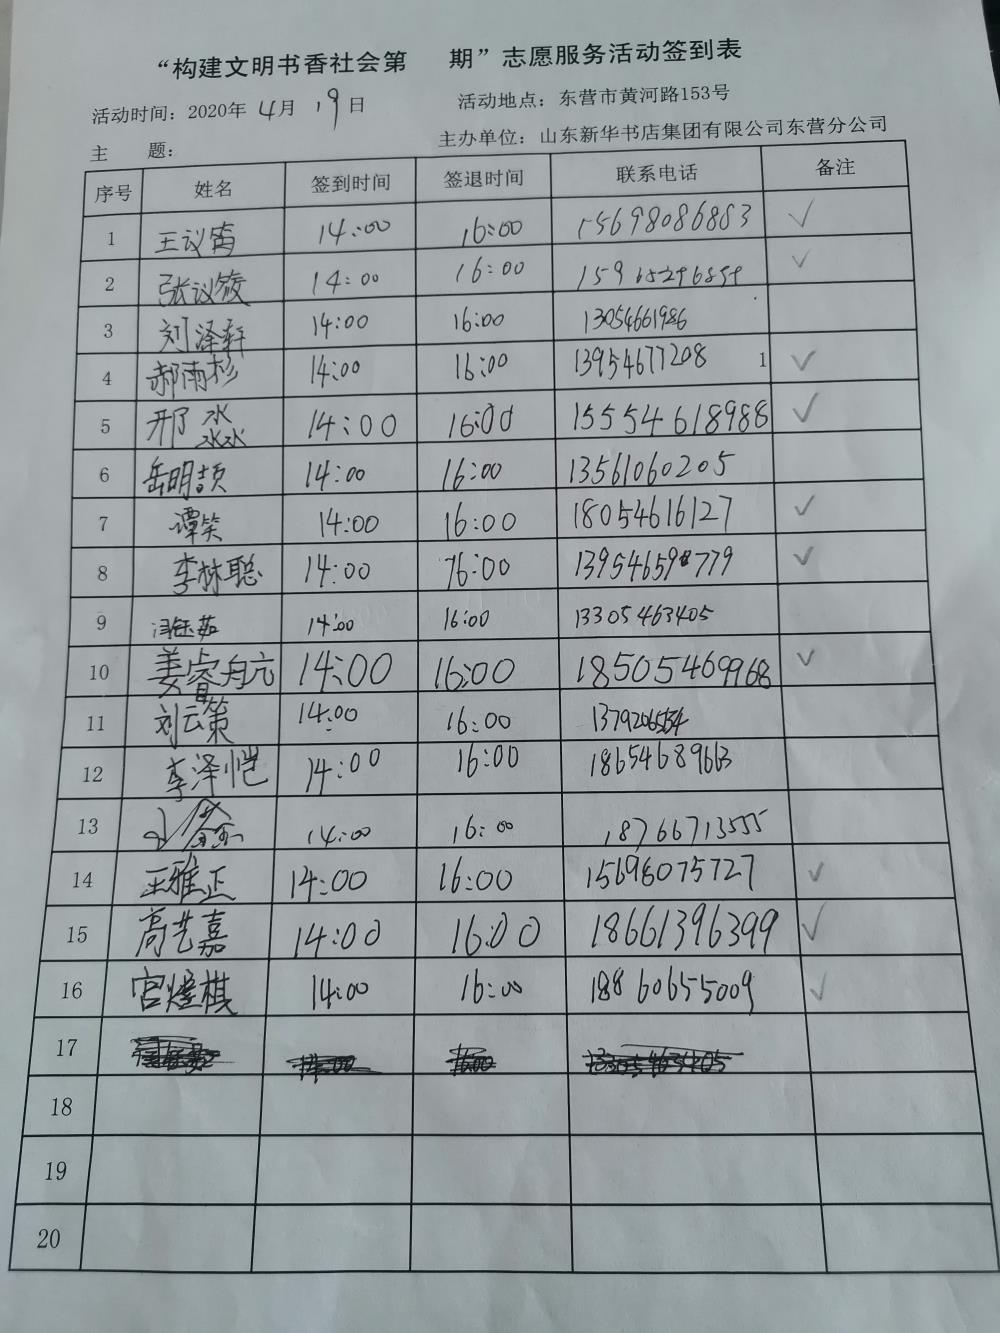 “构建文明书香社会第 期”志愿服务活动签到表
活动时间：2020年 4月 19日 活动地点：东营市黄河路153号
主 题： 主办单位：山东新华书店集团有限公司东营分公司
序号 姓名 签到时间 签退时间 联系电话 备注
1 王议 14:00 16:00 15698086883 ✓
2 张议筱 14:00 16:00 ✓
3 刘泽轩 14:00 16:00 13054661986
4 郝雨杉 14:00 16:00 13954677208 1 ✓
5 邢淼 14:00 16:00 15554618988 ✓
6 岳明颉 14:00 16:00 13561060205
7 谭笑 14:00 16:00 18054616127 ✓
8 李林聪 14:00 16:00 ✓
9 14:00 16:00 13305463405
10 姜睿航 14:00 16:00 18505469968 ✓
11 刘云策 14:00 16:00
12 李泽恺 14:00 16:00 18654689663
13 14:00 16:00 18766713555
14 王雅正 14:00 16:00 15698075727 ✓
15 高艺嘉 14:00 16:00 18661396399 ✓
16 宫煜棋 14:00 16:00 18860655009 ✓
17 14:00 16:00 13305463405
18
19
20